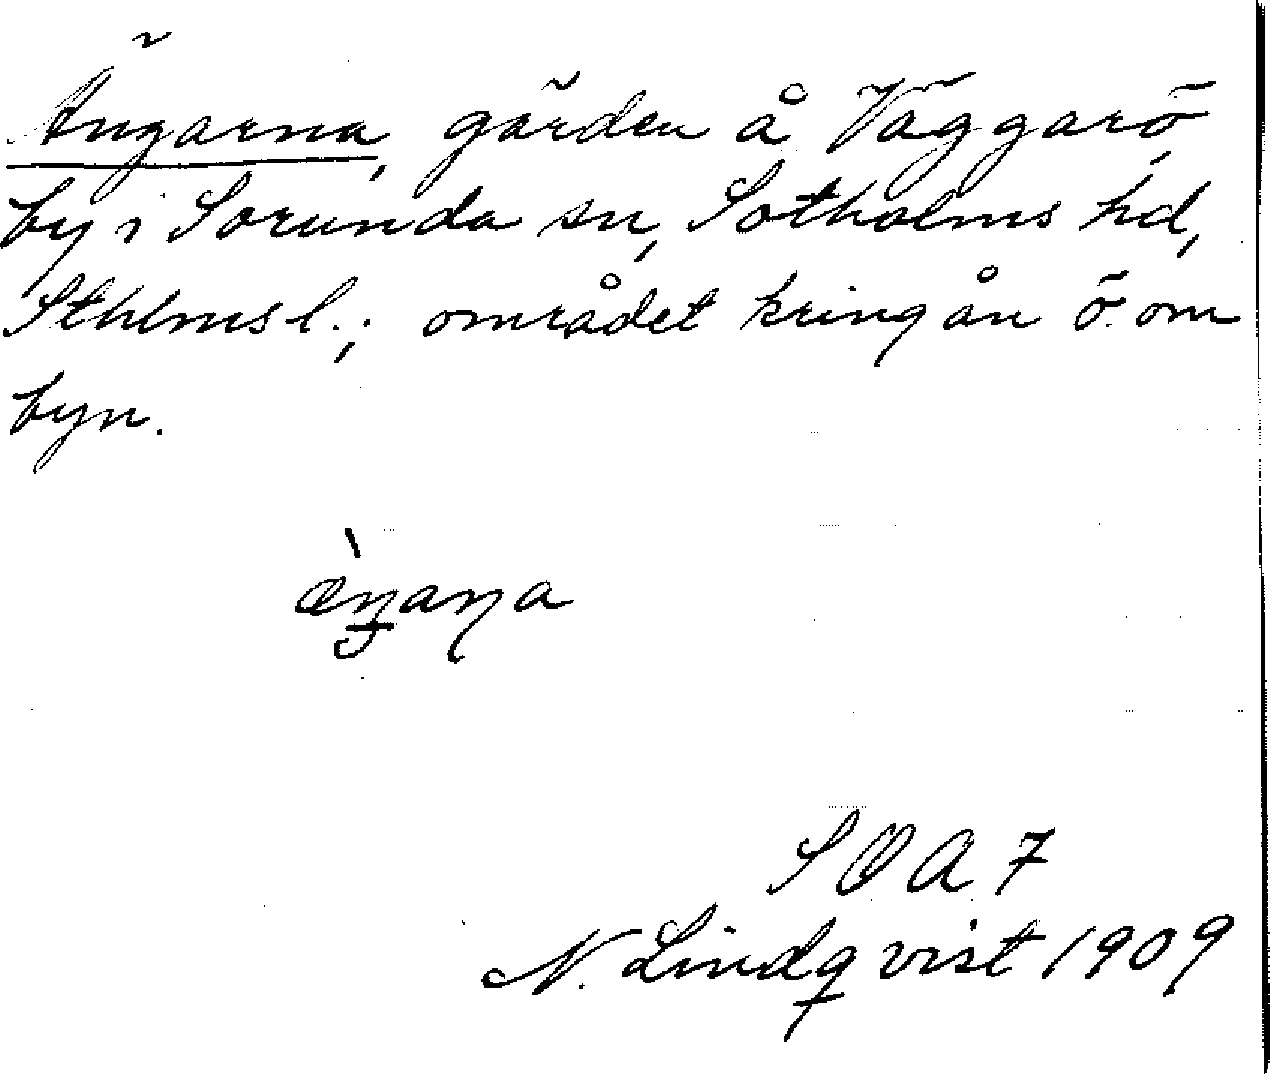 Ängarna, gärden å Väggarö
by i Sorunda sn, Sotholms hd,
Sthlms l.; området kring ån ö. om
byn.
æ̀ŋaŋa
SOA 7
N. Lindqvist 1909